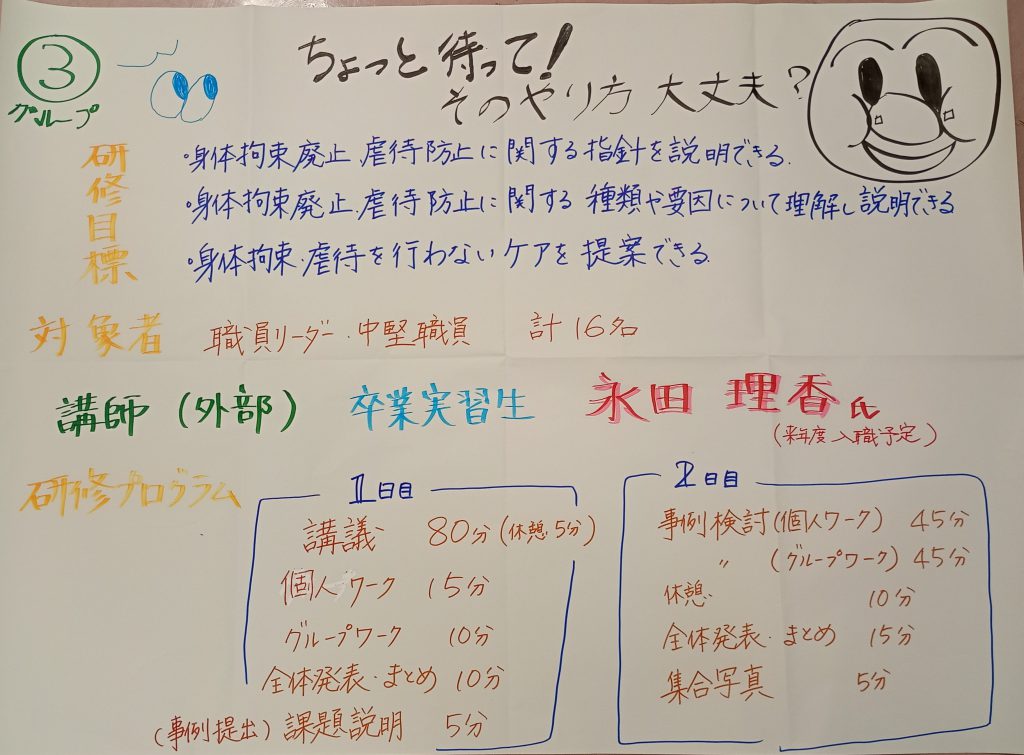 ③
グループ
ちょっと待って!
そのやり方大丈夫?
研修目標
・身体拘束廃止、虐待防止に関する指針を説明できる.
・身体拘束廃止、虐待防止に関する種類や要因について理解し説明できる
・身体拘束・虐待を行わないケアを提案できる.
対象者 職員リーダー・中堅職員 計16名
講師(外部) 卒業実習生 永田 理香氏
(来年度入職予定)
研修プログラム
1日目
講議 80分(休憩5分)
個人ワーク 15分
グループワーク 10分
全体発表・まとめ 10分
(事例提出)課題説明 5分
2日目
事例検討(個人ワーク) 45分
〃 (グループワーク) 45分
休憩 10分
全体発表・まとめ 15分
集合写真 5分